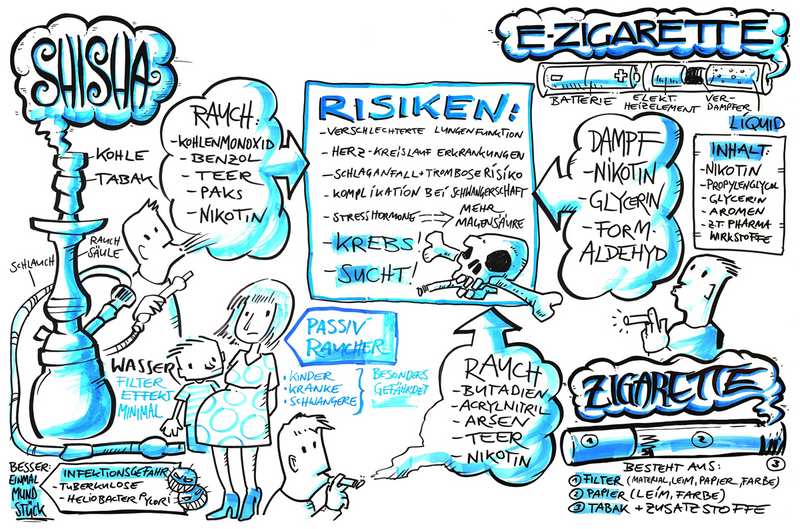 SHISHA
KOHLE
TABAK
RAUCH-
SÄULE
SCHLAUCH
WASSER
FILTER
EFFEKT
MINIMAL
BESSER:
EINMAL
MUND
STÜCK
INFEKTIONSGEFAHR
-TUBERKULOSE
-HELIOBACTER PYLORI
RAUCH:
-KOHLENMONOXID
-BENZOL
-TEER
-PAKS
-NIKOTIN
RISIKEN:
-VERSCHLECHTERTE LUNGENFUNKTION
-HERZ-KREISLAUF ERKRANKUNGEN
-SCHLAGANFALL+TROMBOSE RISIKO
-KOMPLIKATION BEI SCHWANGERSCHAFT
-STRESSHORMONE ⇒ MEHR
MAGENSÄURE
-KREBS!
-SUCHT!
PASSIV
RAUCHER
•KINDER
•KRANKE
•SCHWANGERE
BESONDERS
GEFÄHRDET
RAUCH
-BUTADIEN
-ACRYLNITRIL
-ARSEN
-TEER
-NIKOTIN
E-ZIGARETTE
- + +
BATTERIE
ELEKT.
HEIZELEMENT
VER-
DAMPFER
LIQUID
INHALT:
-NIKOTIN
-PROPYLENGLYCOL
-GLYCERIN
-AROMEN
-Z.T. PHARMA
WIRKSTOFFE
DAMPF
-NIKOTIN
-GLYCERIN
-FORM-
ALDEHYD
ZIGARETTE
1 2 3
BESTEHT AUS:
1 FILTER (MATERIAL, LEIM, PAPIER, FARBE)
2 PAPIER (LEIM, FARBE)
3 TABAK + ZUSATZSTOFFE